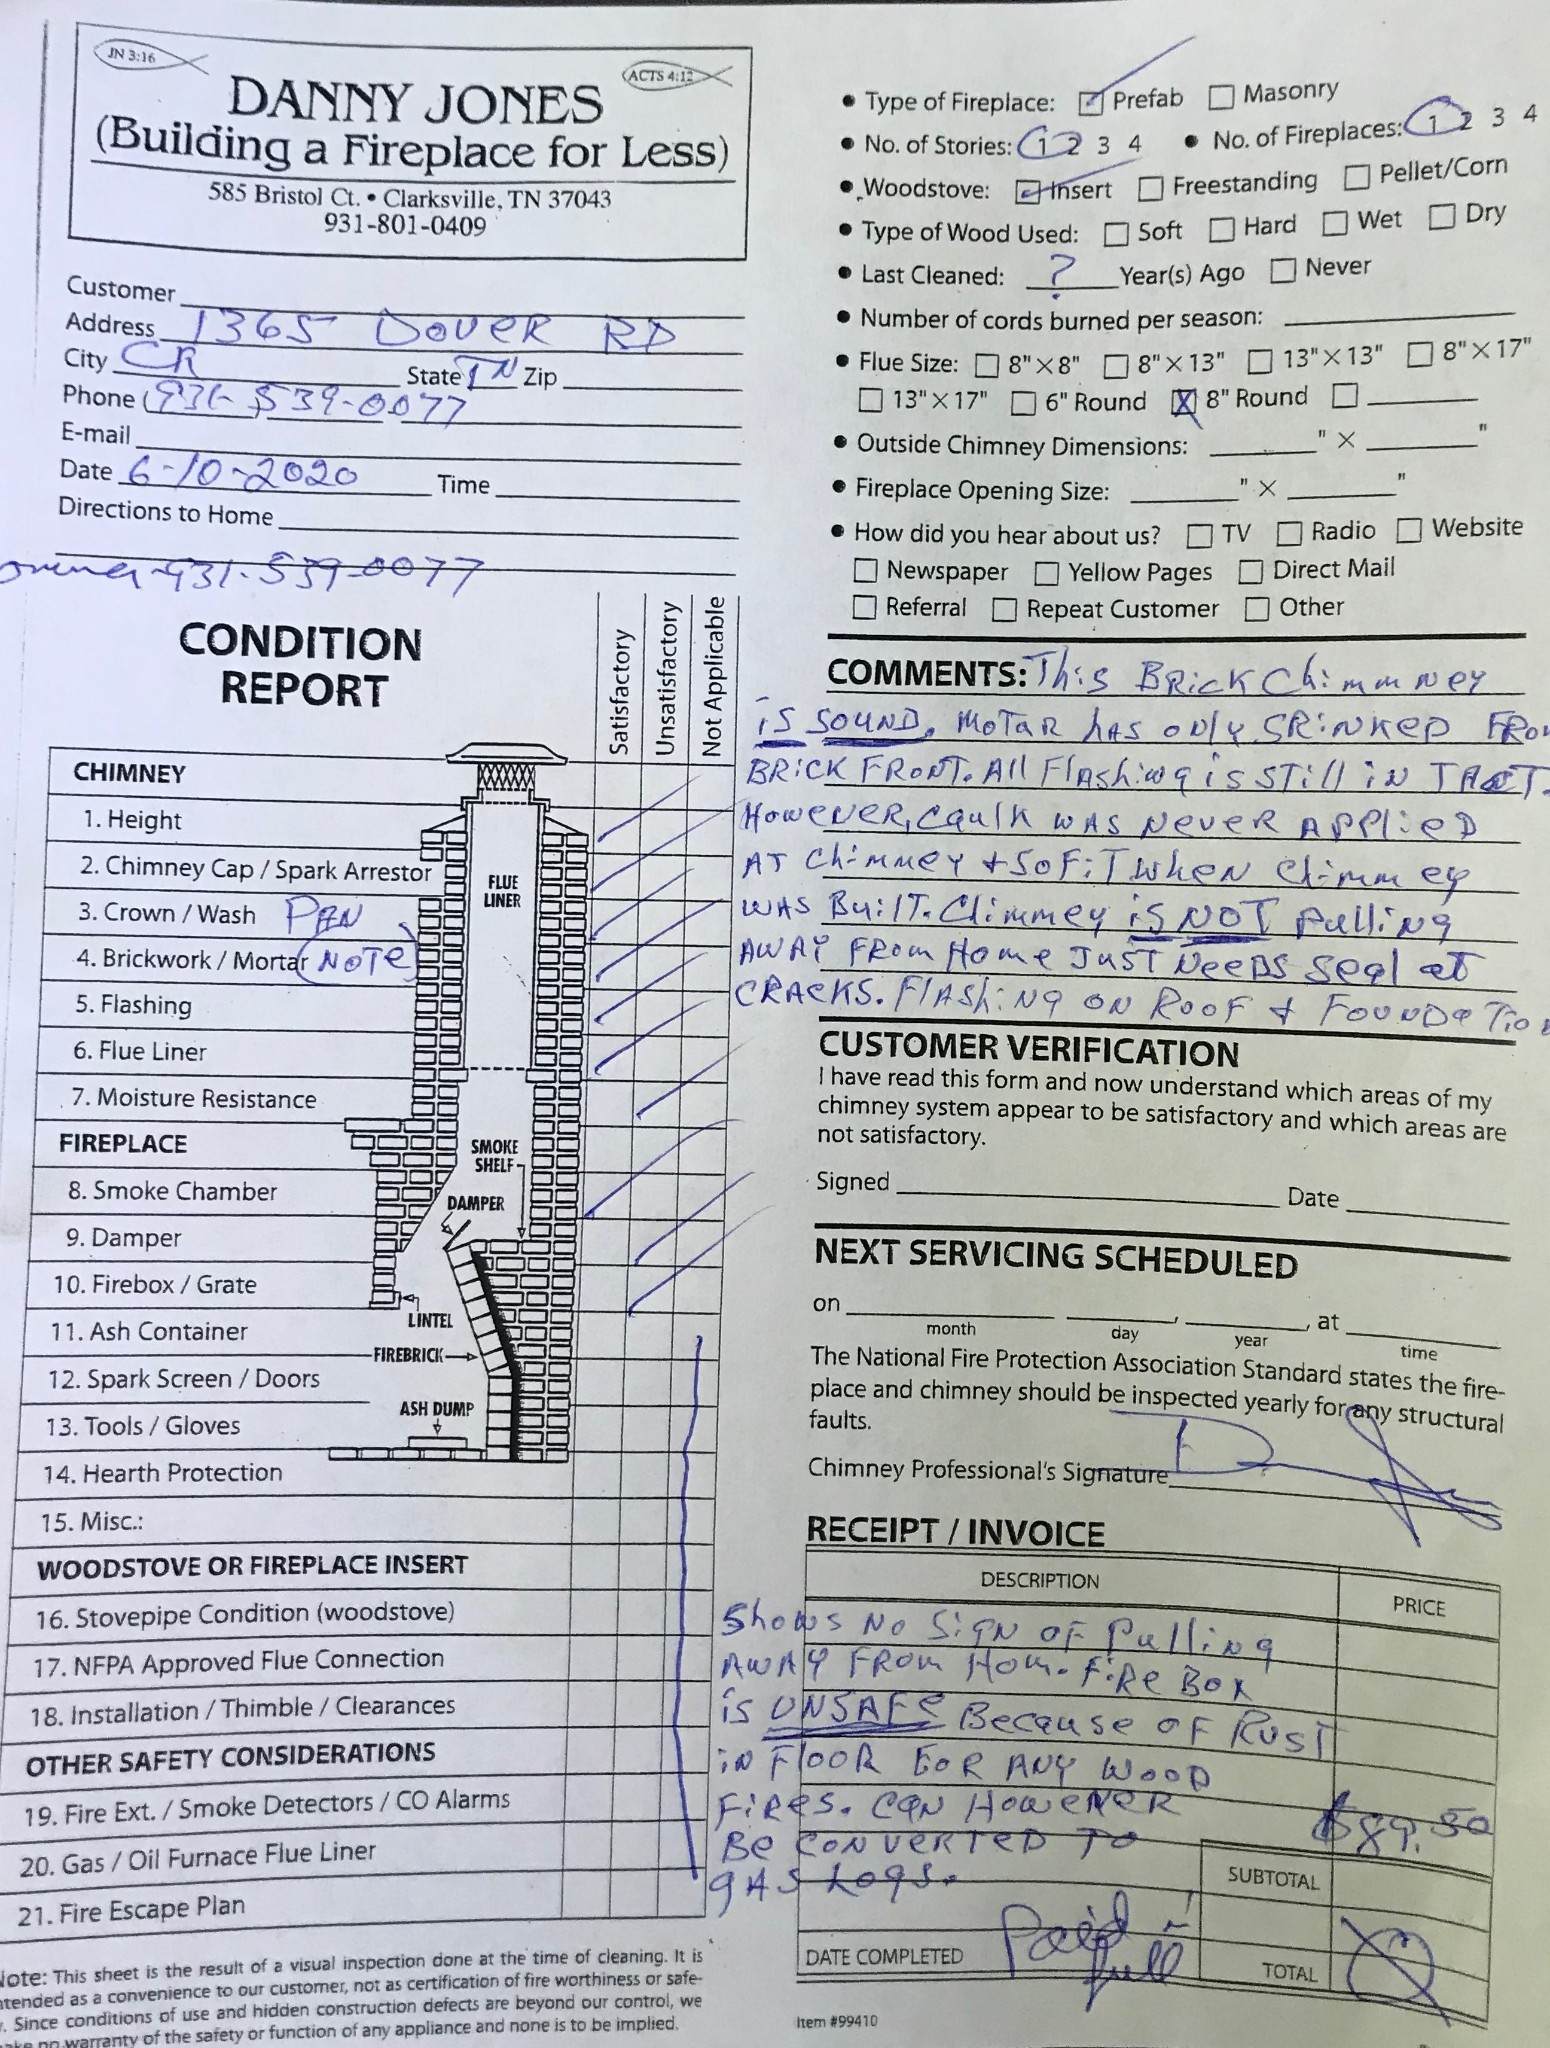 JN 3:16
ACTS 4:12
DANNY JONES
(Building a Fireplace for Less)
585 Bristol Ct. • Clarksville, TN 37043
931-801-0409
Customer
Address 1365 Dover RD
City State TN Zip
Phone (931-539-0077
E-mail
Date 6-10-2020 Time
Directions to Home
931-539-0077
• Type of Fireplace: Prefab Masonry
• No. of Stories: 1 2 3 4 • No. of Fireplaces: 1 2 3 4
• Woodstove: Insert Freestanding Pellet/Corn
• Type of Wood Used: Soft Hard Wet Dry
• Last Cleaned: ? Year(s) Ago Never
• Number of cords burned per season:
• Flue Size: 8" X 8" 8" X 13" 13" X 13" 8" X 17"
13" X 17" 6" Round X 8" Round
• Outside Chimney Dimensions: " X "
• Fireplace Opening Size: " X "
• How did you hear about us? TV Radio Website
Newspaper Yellow Pages Direct Mail
Referral Repeat Customer Other
CONDITION
REPORT
Satisfactory
Unsatisfactory
Not Applicable
CHIMNEY
1. Height
2. Chimney Cap / Spark Arrestor
3. Crown / Wash PAN
4. Brickwork / Mortar (NOTE)
5. Flashing
6. Flue Liner
7. Moisture Resistance
FIREPLACE
8. Smoke Chamber
9. Damper
10. Firebox / Grate
11. Ash Container
12. Spark Screen / Doors
13. Tools / Gloves
14. Hearth Protection
15. Misc.:
WOODSTOVE OR FIREPLACE INSERT
16. Stovepipe Condition (woodstove)
17. NFPA Approved Flue Connection
18. Installation / Thimble / Clearances
OTHER SAFETY CONSIDERATIONS
19. Fire Ext. / Smoke Detectors / CO Alarms
20. Gas / Oil Furnace Flue Liner
21. Fire Escape Plan
FLUE
LINER
SMOKE
SHELF
DAMPER
LINTEL
FIREBRICK
ASH DUMP
Note: This sheet is the result of a visual inspection done at the time of cleaning. It is
ntended as a convenience to our customer, not as certification of fire worthiness or safe-
. Since conditions of use and hidden construction defects are beyond our control, we
ake no warranty of the safety or function of any appliance and none is to be implied.
COMMENTS: This BRick Chimmney
is SOUND. MOTAR hAS ONly SRINKED FROM
BRICK FRONT. All Flashing is still in TACT.
HOWEVER, CAULK WAS NEVER APPLIED
AT Chimmey + SOFIT WHEN Chimmey
WAS BUILT. Chimmey IS NOT Pulling
AWAY FROM HOME JUST NEEDS SEAL at
CRACKS. FLASHING ON ROOF + FOUNDATION
CUSTOMER VERIFICATION
I have read this form and now understand which areas of my
chimney system appear to be satisfactory and which areas are
not satisfactory.
Signed Date
NEXT SERVICING SCHEDULED
on month day, year, at time
The National Fire Protection Association Standard states the fire-
place and chimney should be inspected yearly for any structural
faults.
Chimney Professional's Signature
RECEIPT / INVOICE
DESCRIPTION PRICE
Shows NO SigN OF Pulling
AWAY FROM Hom. FiRE BOX
is UNSAFE Because OF RUST
iN FlOOR FOR ANY WOOD
FIRES. CAN HOWEVER
BE CONVERTED TO
GAS LOGS.
$89.50
SUBTOTAL
Paid
full
DATE COMPLETED
TOTAL
Item #99410